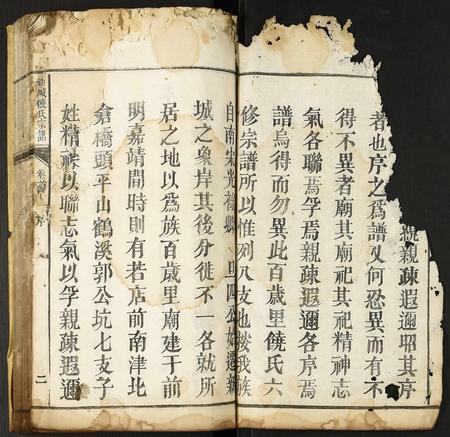 親親疎遐邇昭其序
者也序之為譜又何恐異而有不
得不異者廟其廟祀其祀精神志
氣各聯焉孚焉親疎遐邇各序焉
譜烏得而勿異此百歲里饒氏六
修宗譜所以惟列八支也按我族
自南宋光 旦四公始遷新
城之象岸其後分徙不一各就所
居之地以為族百歲里廟建于前
明嘉靖間時則有若店前南津北
倉橋頭平山鶴溪郭公坑七支子
姓精 以聯志氣以孚親疎遐邇
新城饒氏宗譜
序
二